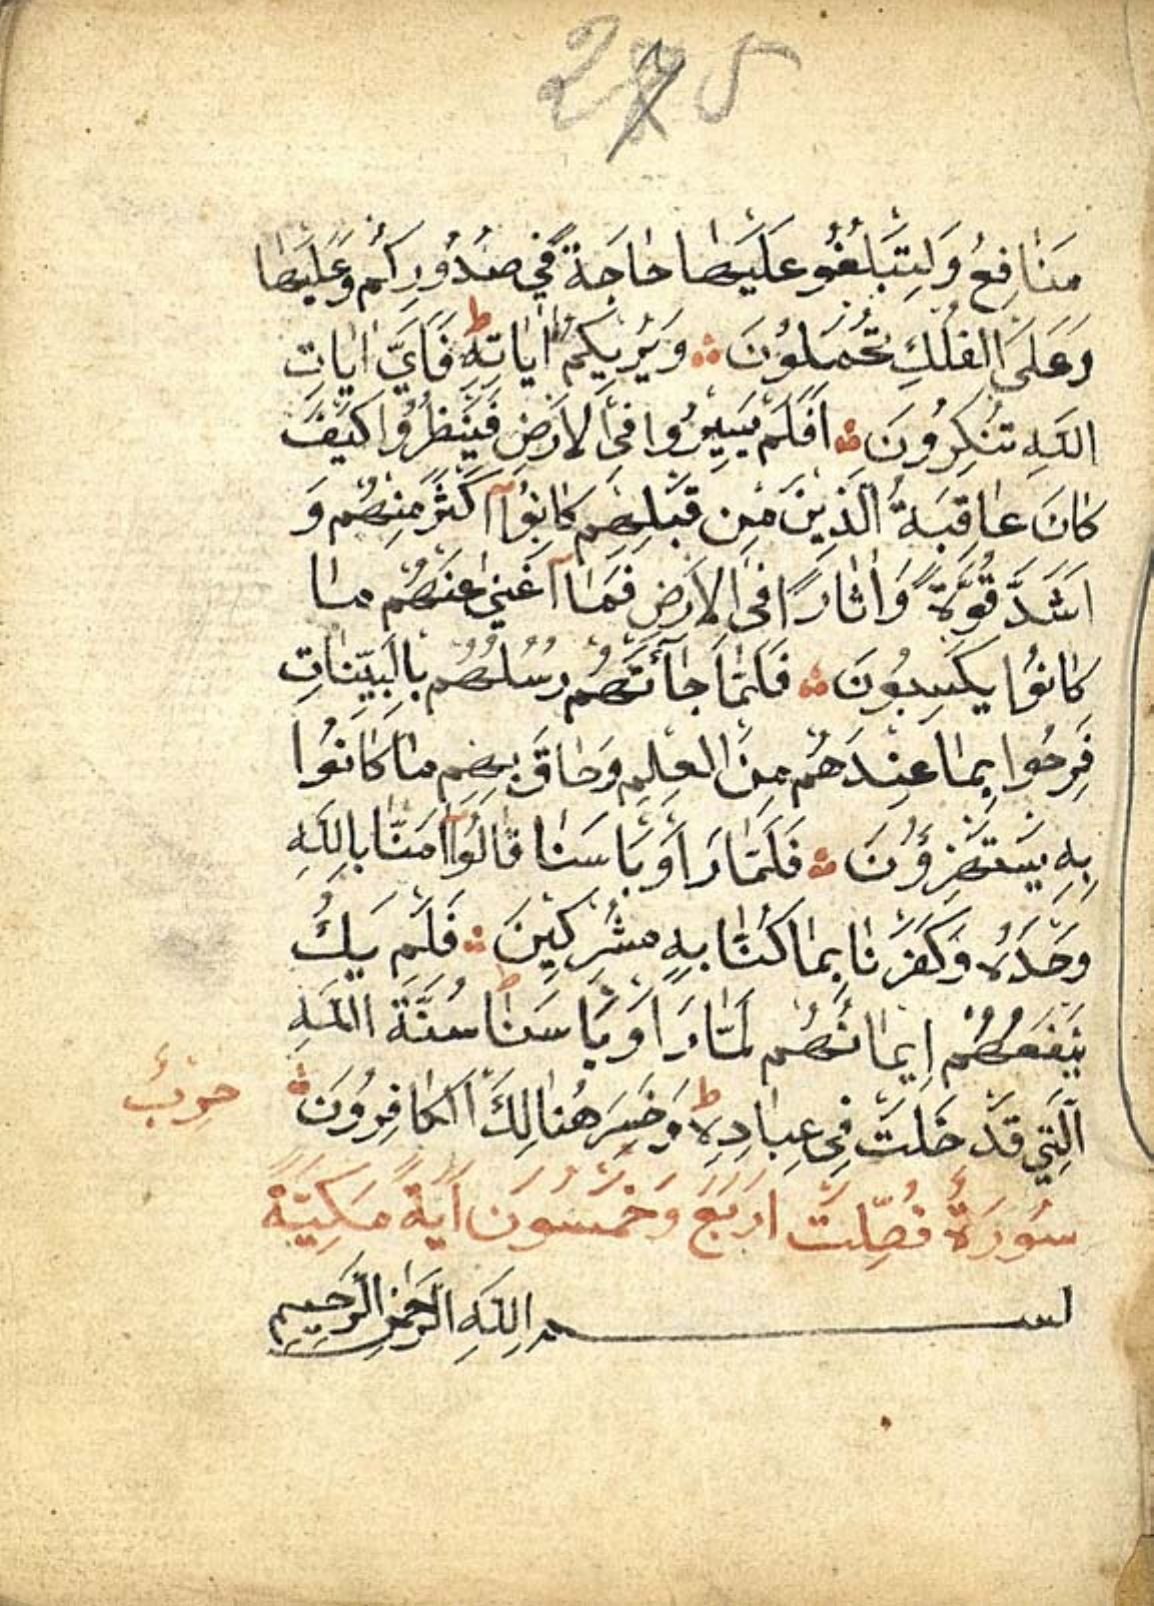 275
مَنَافِعُ وَلِتَبْلُغُو عَلَيْهَا حَاجَةً فِي صُدُورِكُمْ وَعَلَيْهَا
وَعَلَى الْفُلْكِ تُحْمَلُونَ ۞ وَيُرِيكُمْ اٰيَاتِهِ ط فَاَيَّ اٰيَاتِ
اللّٰهِ تُنْكِرُونَ ۞ اَفَلَمْ يَسِيرُوا فِي الْاَرْضِ فَيَنْظُرُوا كَيْفَ
كَانَ عَاقِبَةُ الَّذِينَ مِنْ قَبْلِهِمْ كَانُوٓا اَكْثَرَ مِنْهُمْ وَ
اَشَدَّ قُوَّةً وَاٰثَارًا فِي الْاَرْضِ فَمَٓا اَغْنٰى عَنْهُمْ مَا
كَانُوا يَكْسِبُونَ ۞ فَلَمَّا جَٓائَتْهُمْ رُسُلُهُمْ بِالْبَيِّنَاتِ
فَرِحُوا بِمَا عِنْدَهُمْ مِنَ الْعِلْمِ وَحَاقَ بِهِمْ مَا كَانُوا
بِهِ يَسْتَهْزِؤُنَ ۞ فَلَمَّا رَاَوْ بَاْسَنَا قَالُوٓا اٰمَنَّا بِاللّٰهِ
وَحْدَهُ وَكَفَرْنَا بِمَا كُنَّا بِهِ مُشْرِكِينَ ۞ فَلَمْ يَكُ
يَنْفَعُهُمْ اِيمَانُهُمْ لَمَّا رَاَوْ بَاْسَنَا ط سُنَّةَ اللّٰهِ
الَّتِي قَدْ خَلَتْ فِي عِبَادِهِ ط وَخَسِرَ هُنَالِكَ الْكَافِرُونَ ۞
حِزْبٌ
سُورَةُ فُصِّلَتْ اَرْبَعَ وَخَمْسُونَ اٰيَةً مَكِيَّةً
بســــــــم اللّٰهِ الرَّحْمٰنِ الرَّحِيمِ